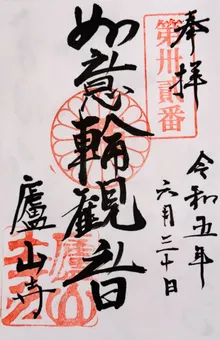 奉拝
第卅貳番
令和五年
六月三十日
如意輪観音
廬山寺